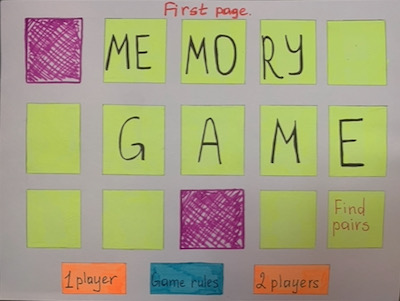 First page.
ME MO RY
G A M E
Find
pairs
1 player
Game rules
2 players